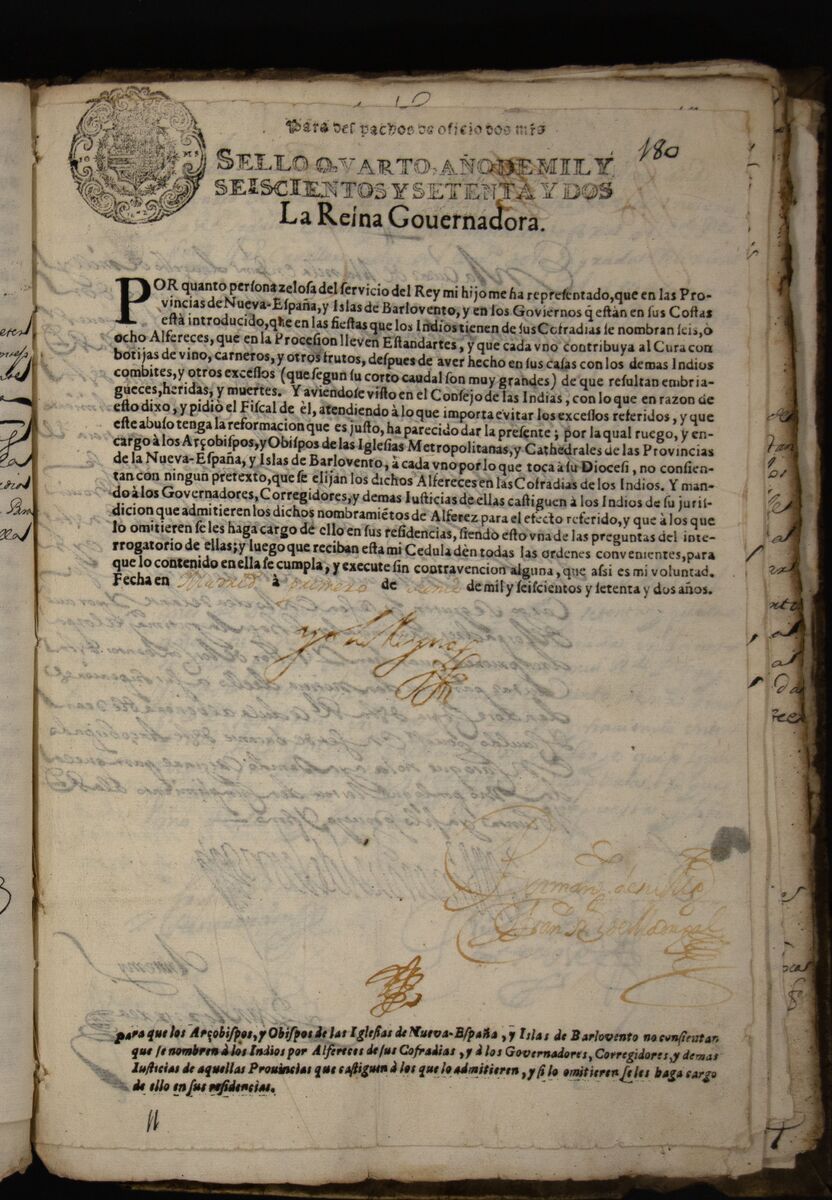 Para despachos de oficio dos mrs
180
SELLO QVARTO, AÑO DE MIL Y
SEISCIENTOS Y SETENTA Y DOS
La Reina Gouernadora.
POR quanto persona zelosa del servicio del Rey mi hijo me ha representado, que en las Pro-
vincias de Nueva-España, y Islas de Barlovento, y en los Goviernos q̃ estàn en sus Costas
està introducido, que en las fiestas que los Indios tienen de sus Cofradias se nombran seis, ò
ocho Alfereces, que en la Procesion lleven Estandartes, y que cada vno contribuya al Cura con
botijas de vino, carneros, y otros frutos, despues de aver hecho en sus casas con los demas Indios
combites, y otros excessos (que segun su corto caudal son muy grandes) de que resultan embria-
gueces, heridas, y muertes. Y aviendose visto en el Consejo de las Indias, con lo que en razon de
esto dixo, y pidiò el Fiscal de èl, atendiendo à lo que importa evitar los excessos referidos, y que
este abuso tenga la reformacion que es justo, ha parecido dar la presente; por la qual ruego, y en-
cargo à los Arçobispos, y Obispos de las Iglesias Metropolitanas, y Cathedrales de las Provincias
de la Nueva-España, y Islas de Barlovento, à cada vno por lo que toca à su Diocesi, no consien-
tan con ningun pretexto, que se elijan los dichos Alfereces en las Cofradias de los Indios. Y man-
do à los Governadores, Corregidores, y demas Iusticias de ellas castiguen à los Indios de su juris-
dicion que admitieren los dichos nombramiẽtos de Alferez para el efecto referido, y que à los que
lo omitieren se les haga cargo de ello en sus residencias, siendo esto vna de las preguntas del inte-
rrogatorio de ellas; y luego que reciban esta mi Cedula dèn todas las ordenes convenientes, para
que lo contenido en ella se cumpla, y execute sin contravencion alguna, que assi es mi voluntad.
Fecha en Madrid à primero de Junio de mil y seiscientos y setenta y dos años.
yo la Reyna
para que los Arçobispos, y Obispos de las Iglesias de Nueva-España, y Islas de Barlovento no consientan
que se nombren à los Indios por Alfereces de sus Cofradias, y à los Governadores, Corregidores, y demas
Iusticias de aquellas Provincias que castiguen à los que lo admitieren, y si lo omitieren se les haga cargo
de ello en sus residencias.